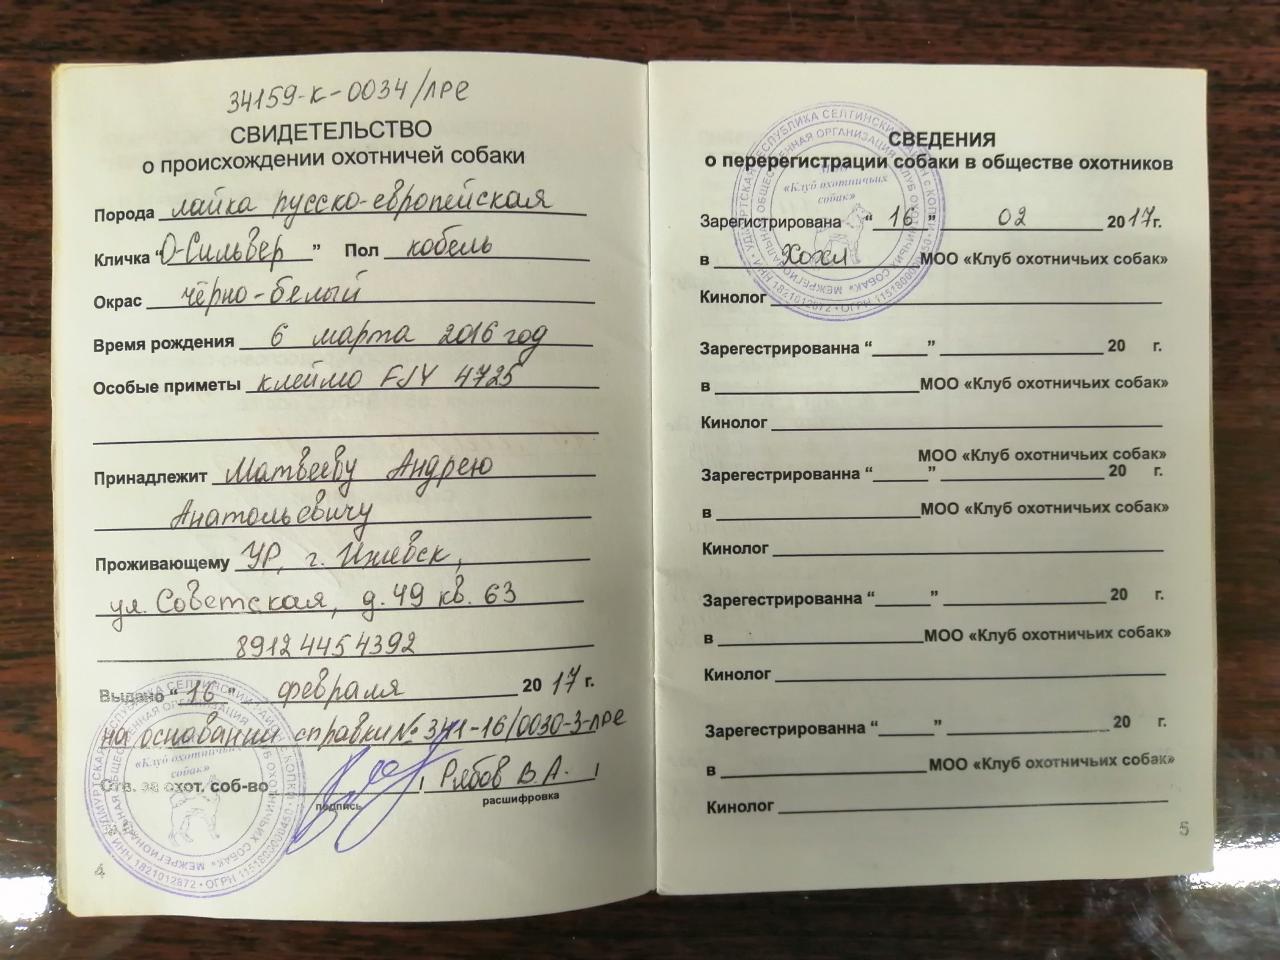 34159-К-0034/ЛРЕ
СВИДЕТЕЛЬСТВО
о происхождении охотничей собаки
Порода лайка русско-европейская
Кличка “О-Сильвер” Пол кобель
Окрас чёрно-белый
Время рождения 6 марта 2016 год
Особые приметы клеймо FJY 4725
Принадлежит Матвееву Андрею
Анатольевичу
Проживающему УР, г. Ижевск,
ул. Советская, д. 49 кв. 63
89124454392
Выдано “16” февраля 2017 г.
на основании справки № 341-16/0030-3-ЛРЕ
Отв. за охот. соб-во Рябов В.А.
подпись расшифровка
«Клуб охотничьих
собак»
4
СВЕДЕНИЯ
о перерегистрации собаки в обществе охотников
«Клуб охотничьих
собак»
Зарегистрирована “16” 02 2017г.
в МОО «Клуб охотничьих собак»
Кинолог
Зарегестрированна “ ” 20 г.
в МОО «Клуб охотничьих собак»
Кинолог
МОО «Клуб охотничьих собак»
Зарегестрированна “ ” 20 г.
в МОО «Клуб охотничьих собак»
Кинолог
Зарегестрированна “ ” 20 г.
в МОО «Клуб охотничьих собак»
Кинолог
Зарегестрированна “ ” 20 г.
в МОО «Клуб охотничьих собак»
Кинолог
5